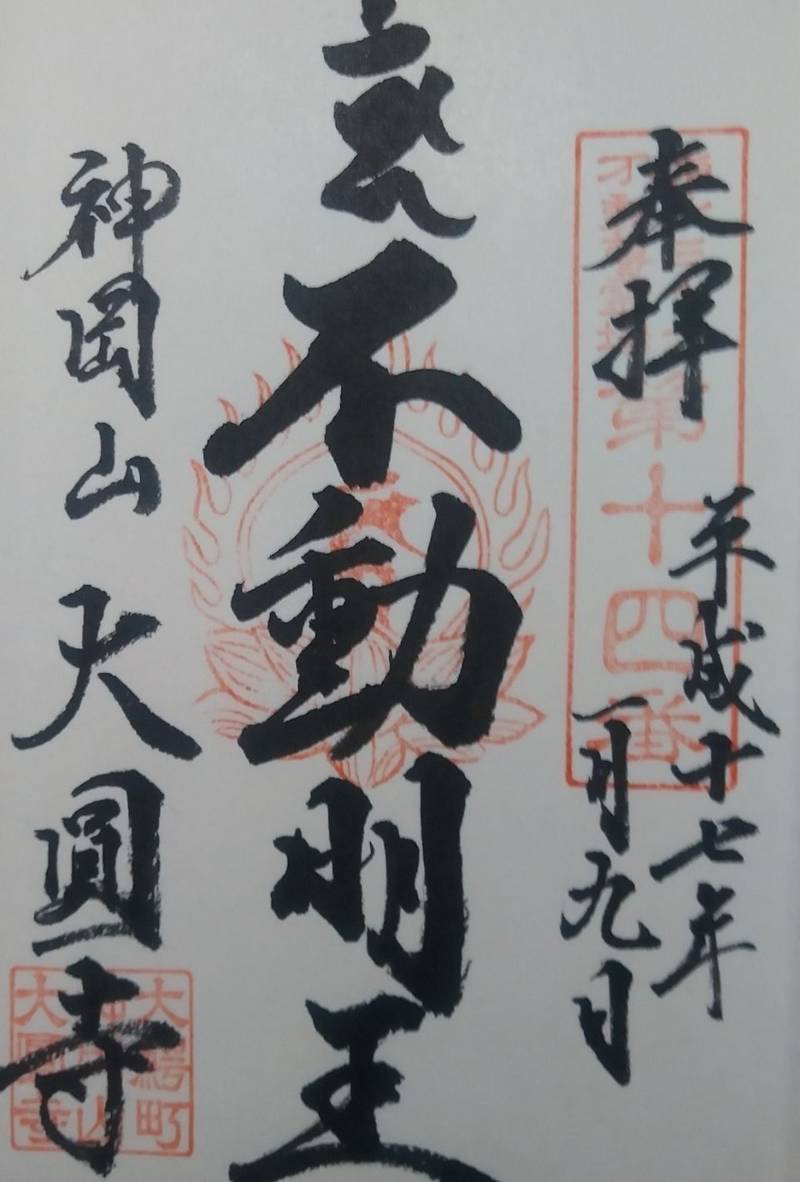 奉拝
平成十七年
一月九日
第十四番
不動明王
神岡山 大圓寺
大
町
大圓寺